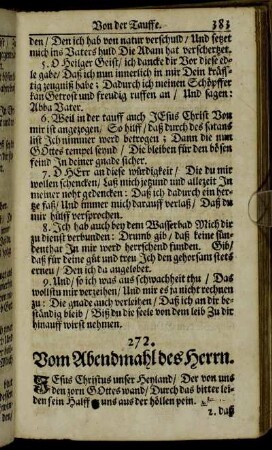 Von der Tauffe. 383
den / Den ich hab von natur verschuld / Und setzet
mich ins Vaters huld Die Adam hat verschertzet.
5. O Heilger Geist / ich dancke dir Vor diese ed-
le gabe / Daß ich nun innerlich in mir Dein kräff-
tig zeugniß habe; Dadurch ich meinen Schöpffer
kan Getrost und freudig ruffen an / Und sagen:
Abba Vater.
6. Weil in der tauff auch JEsus Christ Von
mir ist angezogen / So hilff / daß durch des Satans
list Ich nimmer werd betrogen; Dann die nun
GOttes tempel seynd / Die bleiben für den bösen
feind In deiner gnade sicher.
7. O HErr an diese würdigkeit / Die du mir
wollen schencken / Laß mich jetzund und allezeit In
meiner noht gedencken: Daß ich dadurch ein her-
tze faß / Und immer mich darauff verlaß / Daß du
mir hülff versprochen.
8. Ich hab auch bey dem Wasserbad Mich dir
zu dienst verbunden: Drumb gib / daß keine sün-
denthat In mir werd herrschend funden. Gib /
daß für deine güt und treu Ich den gehorsam stets
erneu / Den ich da angelobet.
9. Und / so ich was aus schwachheit thu / Das
wollstu mir verzeihen / Und mir es ja nicht rechnen
zu: Die gnade auch verleihen / Daß ich an dir be-
ständig bleib / Biß du die seele von dem leib Zu dir
hinauff wirst nehmen.
272.
Vom Abendmahl des Herrn.
JEsus Christus unser Heyland / Der von uns
den zorn GOttes wand / Durch das bitter lei-
den sein Halff uns aus der höllen pein.
2. daß